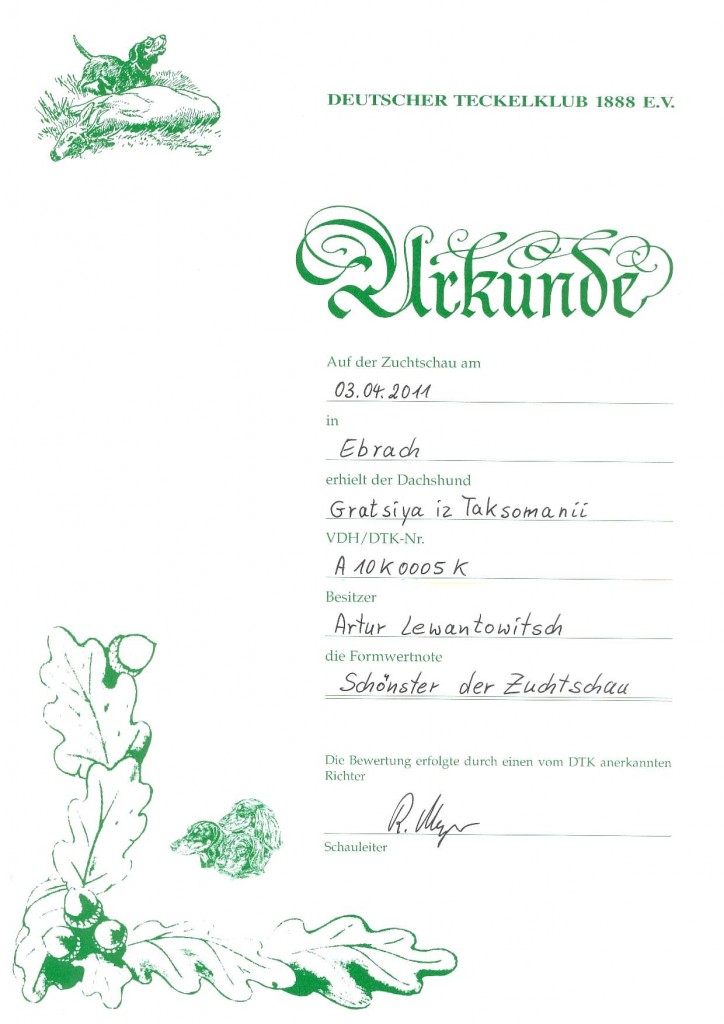 DEUTSCHER TECKELKLUB 1888 E.V.
Urkunde
Auf der Zuchtschau am
03.04.2011
in
Ebrach
erhielt der Dachshund
Gratsiya iz Taksomanii
VDH/DTK-Nr.
A 10K0005 K
Besitzer
Artur Lewantowitsch
die Formwertnote
Schönster der Zuchtschau
Die Bewertung erfolgte durch einen vom DTK anerkannten
Richter
R.
Schauleiter